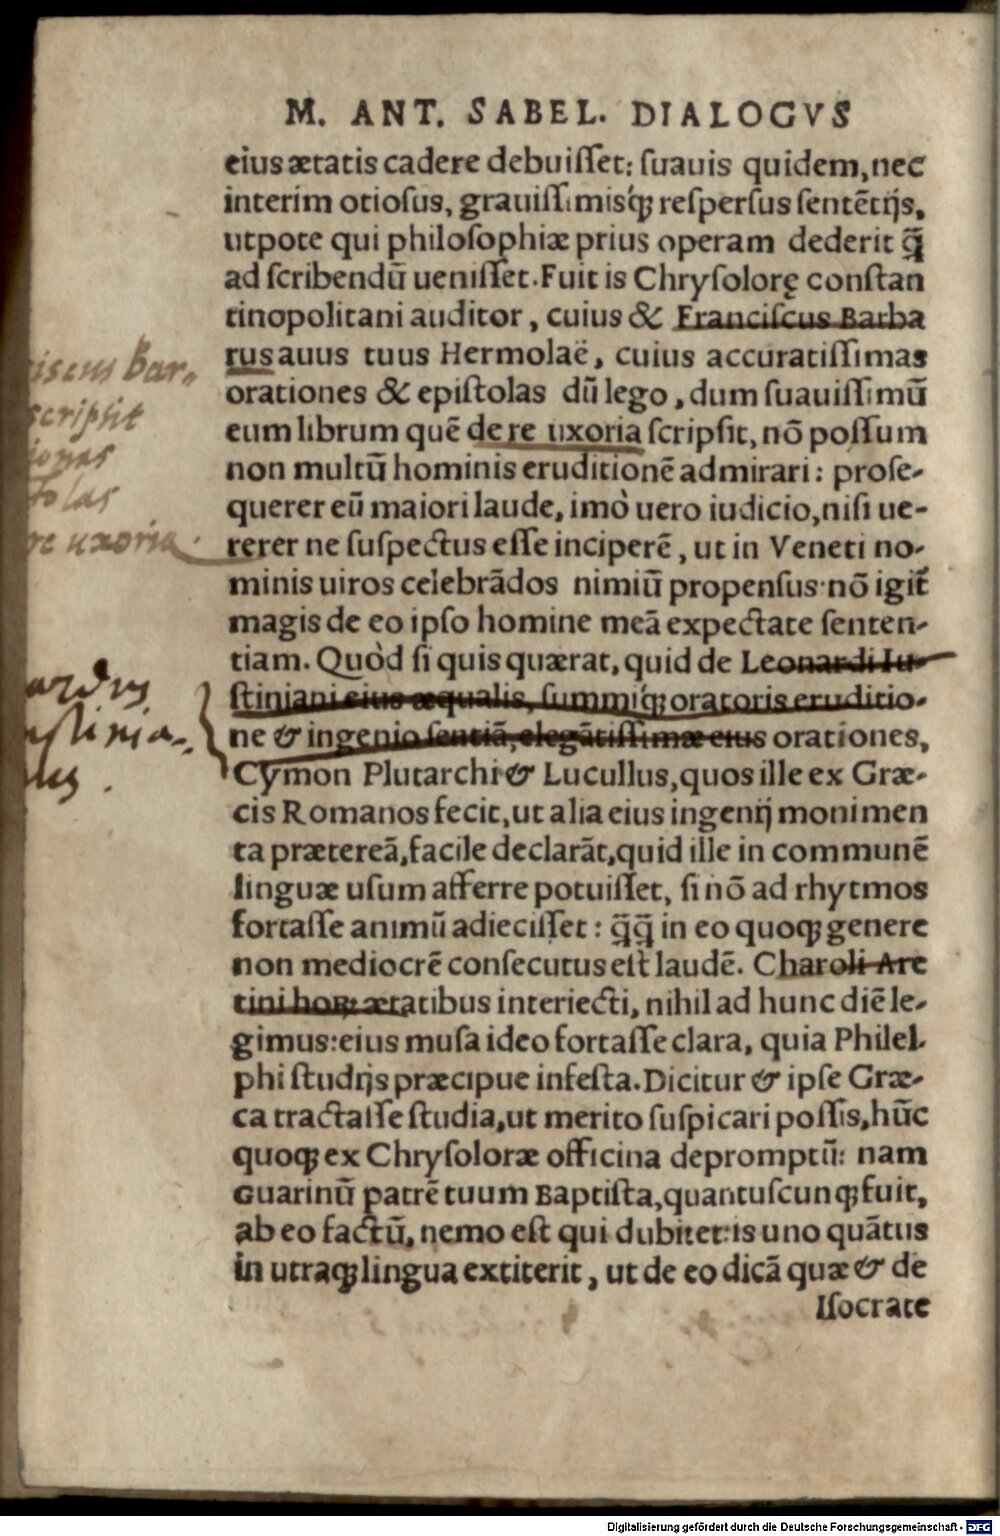 M. ANT. SABEL. DIALOGVS
eius ætatis cadere debuiſſet: ſuauis quidem, nec
interim otioſus, grauiſſimisq́ꝫ reſperſus ſentētijs,
utpote qui philoſophiæ prius operam dederit q̃
ad ſcribendū ueniſſet. Fuit is Chryſolorę conſtan
tinopolitani auditor, cuius & Franciſcus Barba
rus auus tuus Hermolaë, cuius accuratiſſimas
orationes & epiſtolas dū lego, dum ſuauiſſimū
eum librum quē de re uxoria ſcripſit, nō poſſum
non multū hominis eruditionē admirari: proſe-
querer eū maiori laude, imò uero iudicio, niſi ue-
rerer ne ſuſpectus eſſe inciperē, ut in Veneti no-
minis uiros celebrādos nimiū propenſus: nō igit̃
magis de eo ipſo homine meā expectate ſenten-
tiam. Quòd ſi quis quærat, quid de Leonardi Iu-
ſtiniani eius æqualis, ſummiq́ꝫ oratoris eruditio-
ne & ingenio ſentiā, elegātiſſimæ eius orationes,
Cymon Plutarchi & Lucullus, quos ille ex Græ-
cis Romanos fecit, ut alia eius ingenij monimen
ta prætereā, facile declarāt, quid ille in communē
linguæ uſum afferre potuiſſet, ſi nō ad rhytmos
fortaſſe animū adieciſſet: q̃q̃ in eo quoqꝫ genere
non mediocrē conſecutus eſt laudē. Charoli Are
tini horꝝ ætatibus interiecti, nihil ad hunc diē le-
gimus: eius muſa ideo fortaſſe clara, quia Philel-
phi ſtudijs præcipue infeſta. Dicitur & ipſe Græ-
ca tractaſſe ſtudia, ut merito ſuſpicari poſſis, hūc
quoqꝫ ex Chryſoloræ officina depromptū: nam
Guarinū patrē tuum Baptiſta, quantuſcunqꝫ fuit,
ab eo factū, nemo eſt qui dubitet: is uno quātus
in utraqꝫ lingua extiterit, ut de eo dicā quæ & de
Iſocrate
iscus Bar-
scripsit
iones
tolas
re uxoria.
ardus
ustinia-
nus.
Digitalisierung gefördert durch die Deutsche Forschungsgemeinschaft - DFG